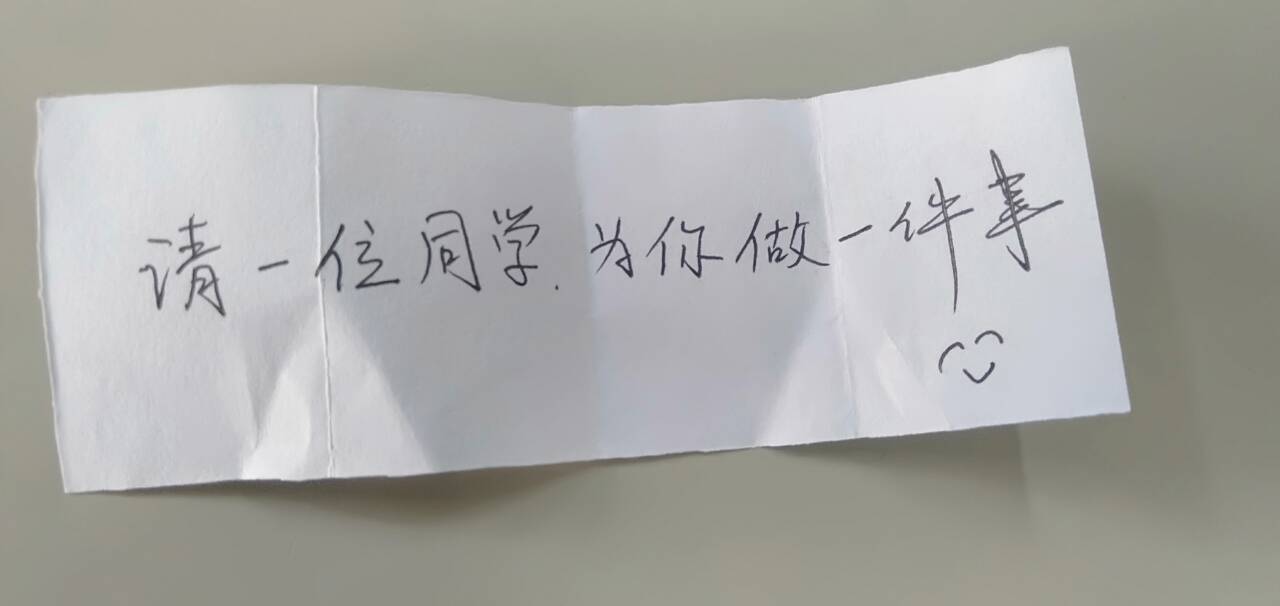 请一位同学.为你做一件事